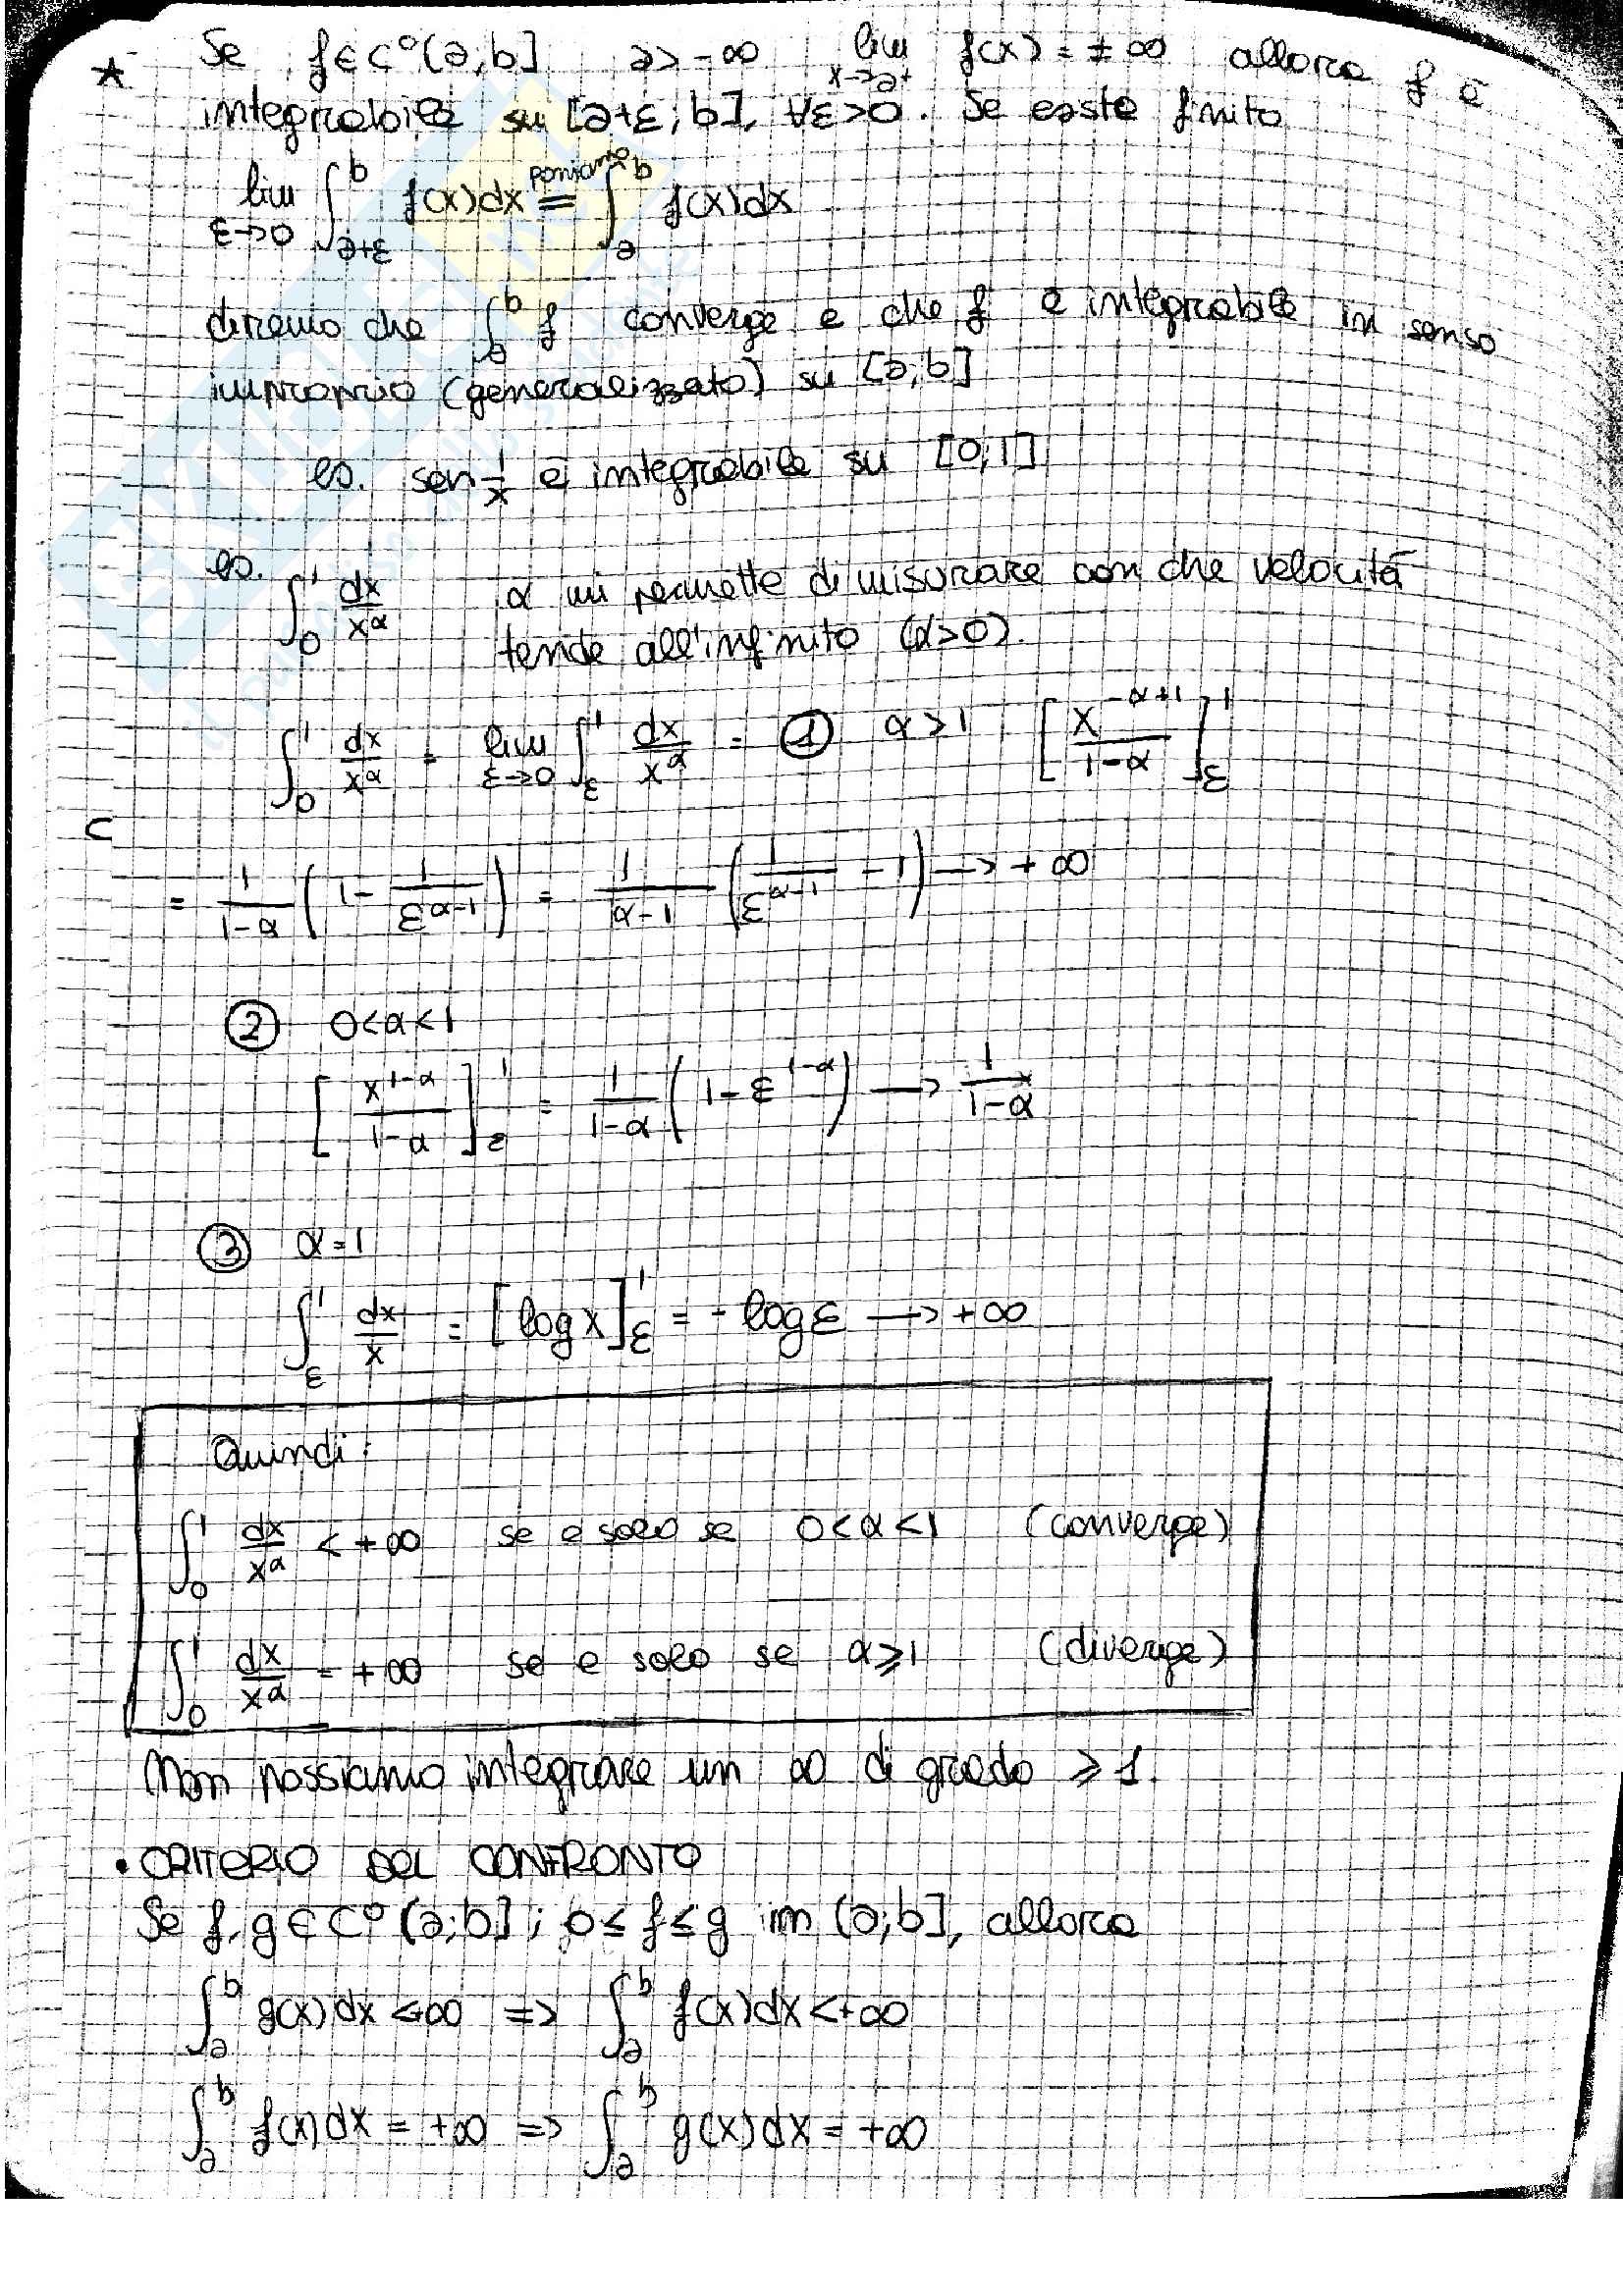 ★ Se f∈C°(a;b] a>-∞ lim x→a⁺ f(x)=±∞ allora f è
integrabile su [a+ε;b], ∀ε>0. Se esiste finito
lim ε→0 ∫_{a+ε}^b f(x)dx = poniamo ∫_a^b f(x)dx
diremo che ∫_a^b f converge e che f è integrabile in senso
improprio (generalizzato) su [a;b]
es. sen 1/x è integrabile su [0;1]
es. ∫_0^1 dx/x^α α mi permette di misurare con che velocità
tende all'infinito (α>0).
∫_0^1 dx/x^α = lim ε→0 ∫_ε^1 dx/x^α = ① α>1 [x^{-α+1}/(1-α)]_ε^1
= 1/(1-α) (1 - 1/ε^{α-1}) = 1/(α-1) (1/ε^{α-1} - 1) → +∞
② 0<α<1
[x^{1-α}/(1-α)]_ε^1 = 1/(1-α) (1-ε^{1-α}) → 1/(1-α)
③ α=1
∫_ε^1 dx/x = [log x]_ε^1 = -log ε → +∞
Quindi:
∫_0^1 dx/x^α < +∞ se e solo se 0<α<1 (converge)
∫_0^1 dx/x^α = +∞ se e solo se α⩾1 (diverge)
Non possiamo integrare un ∞ di grado ⩾1.
• CRITERIO DEL CONFRONTO
Se f,g∈C°(a;b]; 0≤f≤g in (a;b], allora
∫_a^b g(x)dx<+∞ => ∫_a^b f(x)dx<+∞
∫_a^b f(x)dx=+∞ => ∫_a^b g(x)dx=+∞